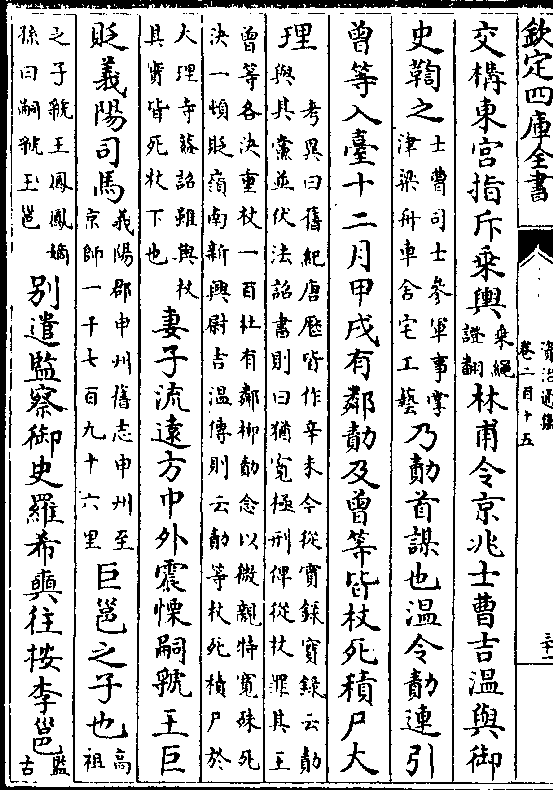 欽定四庫全書
資治通鑑
卷二百十五
交構東宫指斥乗輿乗繩證翻林甫令京兆士曹吉温與御
史鞫之士曹司士參軍事掌津梁舟車舍宅工藝乃勣首謀也温令勣連引
曾等入臺十二月甲戌有鄰勣及曾等皆杖死積尸大
理考異曰舊紀唐歷皆作辛未今從實録實録云勣與其黨並伏法詔書則曰猶寛極刑俾從杖罪其王
曾等各決重杖一百杜有鄰栁勣念以微親特寛殊死決一頓貶嶺南新興尉吉温傳則云勣等杖死積尸於
大理寺葢詔雖與杖其實皆死杖下也妻子流遠方中外震慄嗣虢王巨
貶義陽司馬義陽郡申州舊志申州至京師一千七百九十六里巨邕之子也高祖
之子虢王鳳鳳嫡孫曰嗣虢王邕别遣監察御史羅希奭往按李邕監古